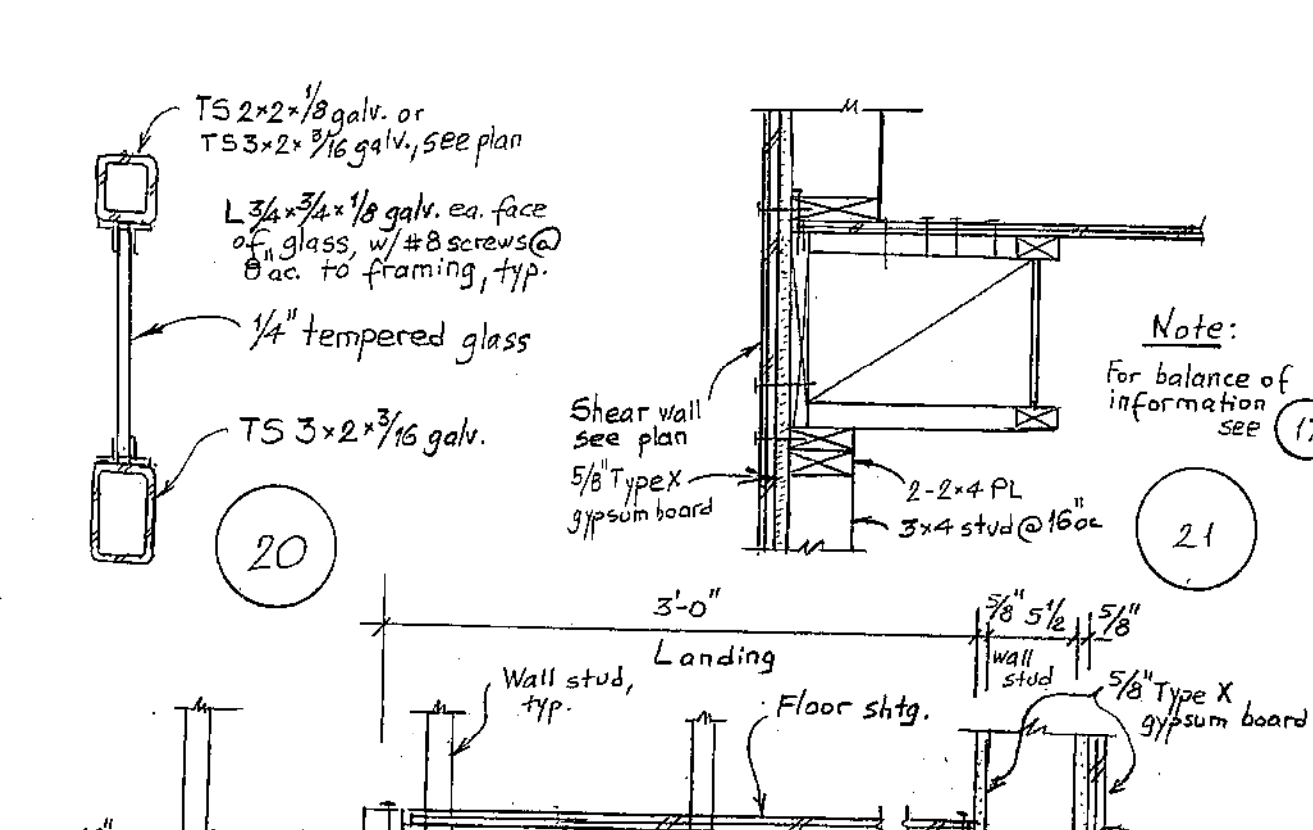 TS 2×2×1/8 galv. or
TS 3×2×3/16 galv., see plan
L 3/4×3/4×1/8 galv. ea. face
of glass, w/ #8 screws @
8" oc. to framing, typ.
1/4" tempered glass
TS 3×2×3/16 galv.
20
Shear wall
see plan
5/8" Type X
gypsum board
2-2×4 PL
3×4 stud @ 16" oc
Note:
For balance of
information
see
21
3'-0"
Landing
5/8" 5 1/2 5/8"
wall
stud
Wall stud,
typ.
Floor shtg.
5/8" Type X
gypsum board